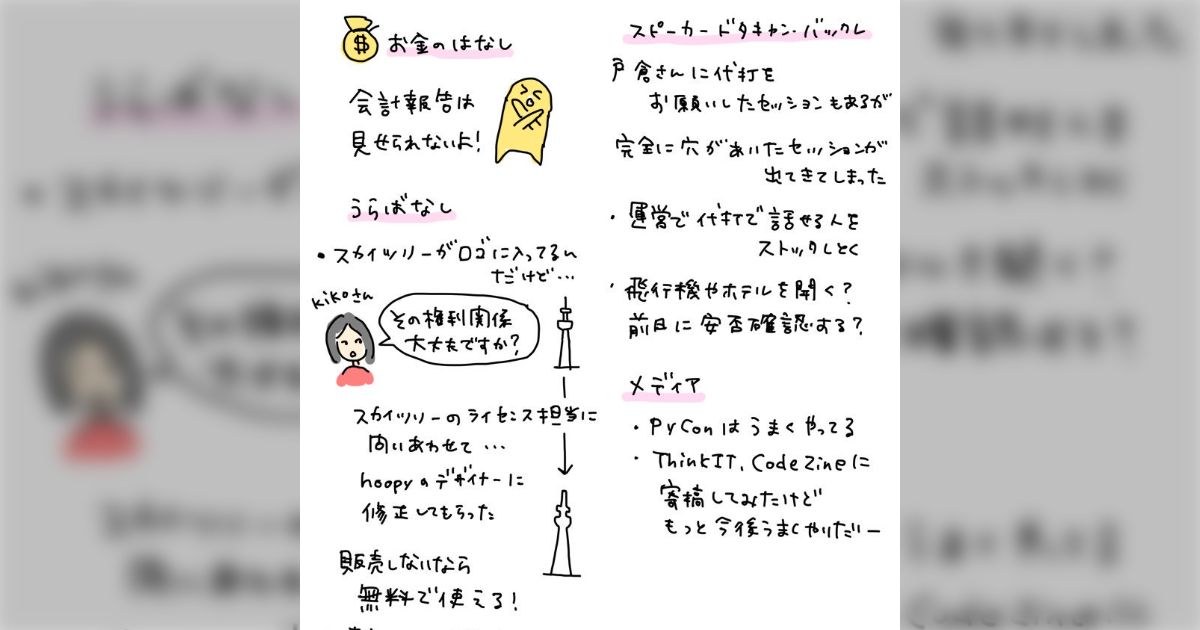 お金のはなし
会計報告は
見せられないよ!
うらばなし
・スカイツリーがロゴに入ってるん
だけど…
kikoさん
その権利関係
大丈夫ですか?
スカイツリーのライセンス担当に
問いあわせて…
hoopyのデザイナーに
修正してもらった
販売しないなら
無料で使える!
スピーカードタキャン・バックレ
戸倉さんに代打を
お願いしたセッションもあるが
完全に穴があいたセッションが
出てきてしまった
・運営で代打で話せる人を
ストックしとく
・飛行機やホテルを聞く?
前日に安否確認する?
メディア
・PyConはうまくやってる
・ThinkIT, CodeZineに
寄稿してみたけど
もっと今後うまくやりたいー